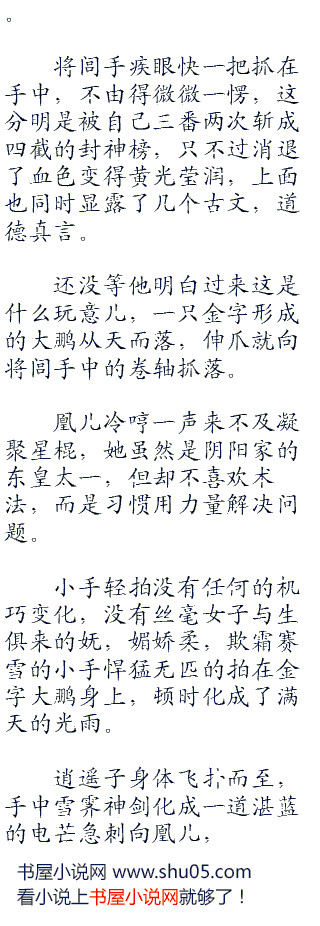 。
将闾手疾眼快一把抓在
手中，不由得微微一愣，这
分明是被自己三番两次斩成
四截的封神榜，只不过消退
了血色变得黄光莹润，上面
也同时显露了几个古文，道
德真言。
还没等他明白过来这是
什么玩意儿，一只金字形成
的大鹏从天而落，伸爪就向
将闾手中的卷轴抓落。
凰儿冷哼一声来不及凝
聚星棍，她虽然是阴阳家的
东皇太一，但却不喜欢术
法，而是习惯用力量解决问
题。
小手轻拍没有任何的机
巧变化，没有丝毫女子与生
俱来的妩，媚娇柔，欺霜赛
雪的小手悍猛无匹的拍在金
字大鹏身上，顿时化成了满
天的光雨。
逍遥子身体飞扑而至，
手中雪霁神剑化成一道湛蓝
的电芒急刺向凰儿，
书屋小说网 www.shu05.com
看小说上书屋小说网就够了！